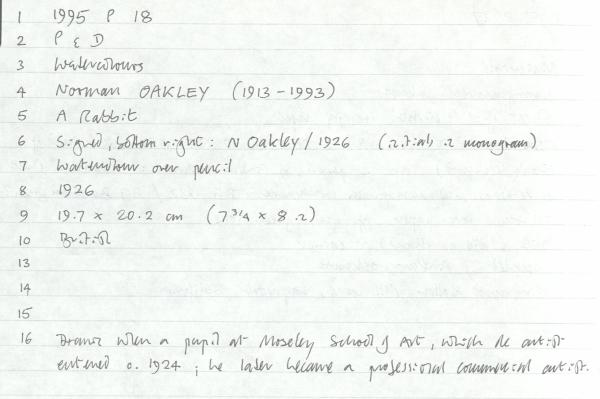 1 1995 P 18
2 P & D
3 Watercolours
4 Norman OAKLEY (1913-1993)
5 A Rabbit
6 Signed, bottom right: N Oakley / 1926 (initials in monogram)
7 Watercolour over pencil
8 1926
9 19.7 x 20.2 cm (7 3/4 x 8 in)
10 British
13
14
15
16 Drawn when a pupil at Moseley School of Art, which the artist
entered c. 1924; he later became a professional commercial artist.